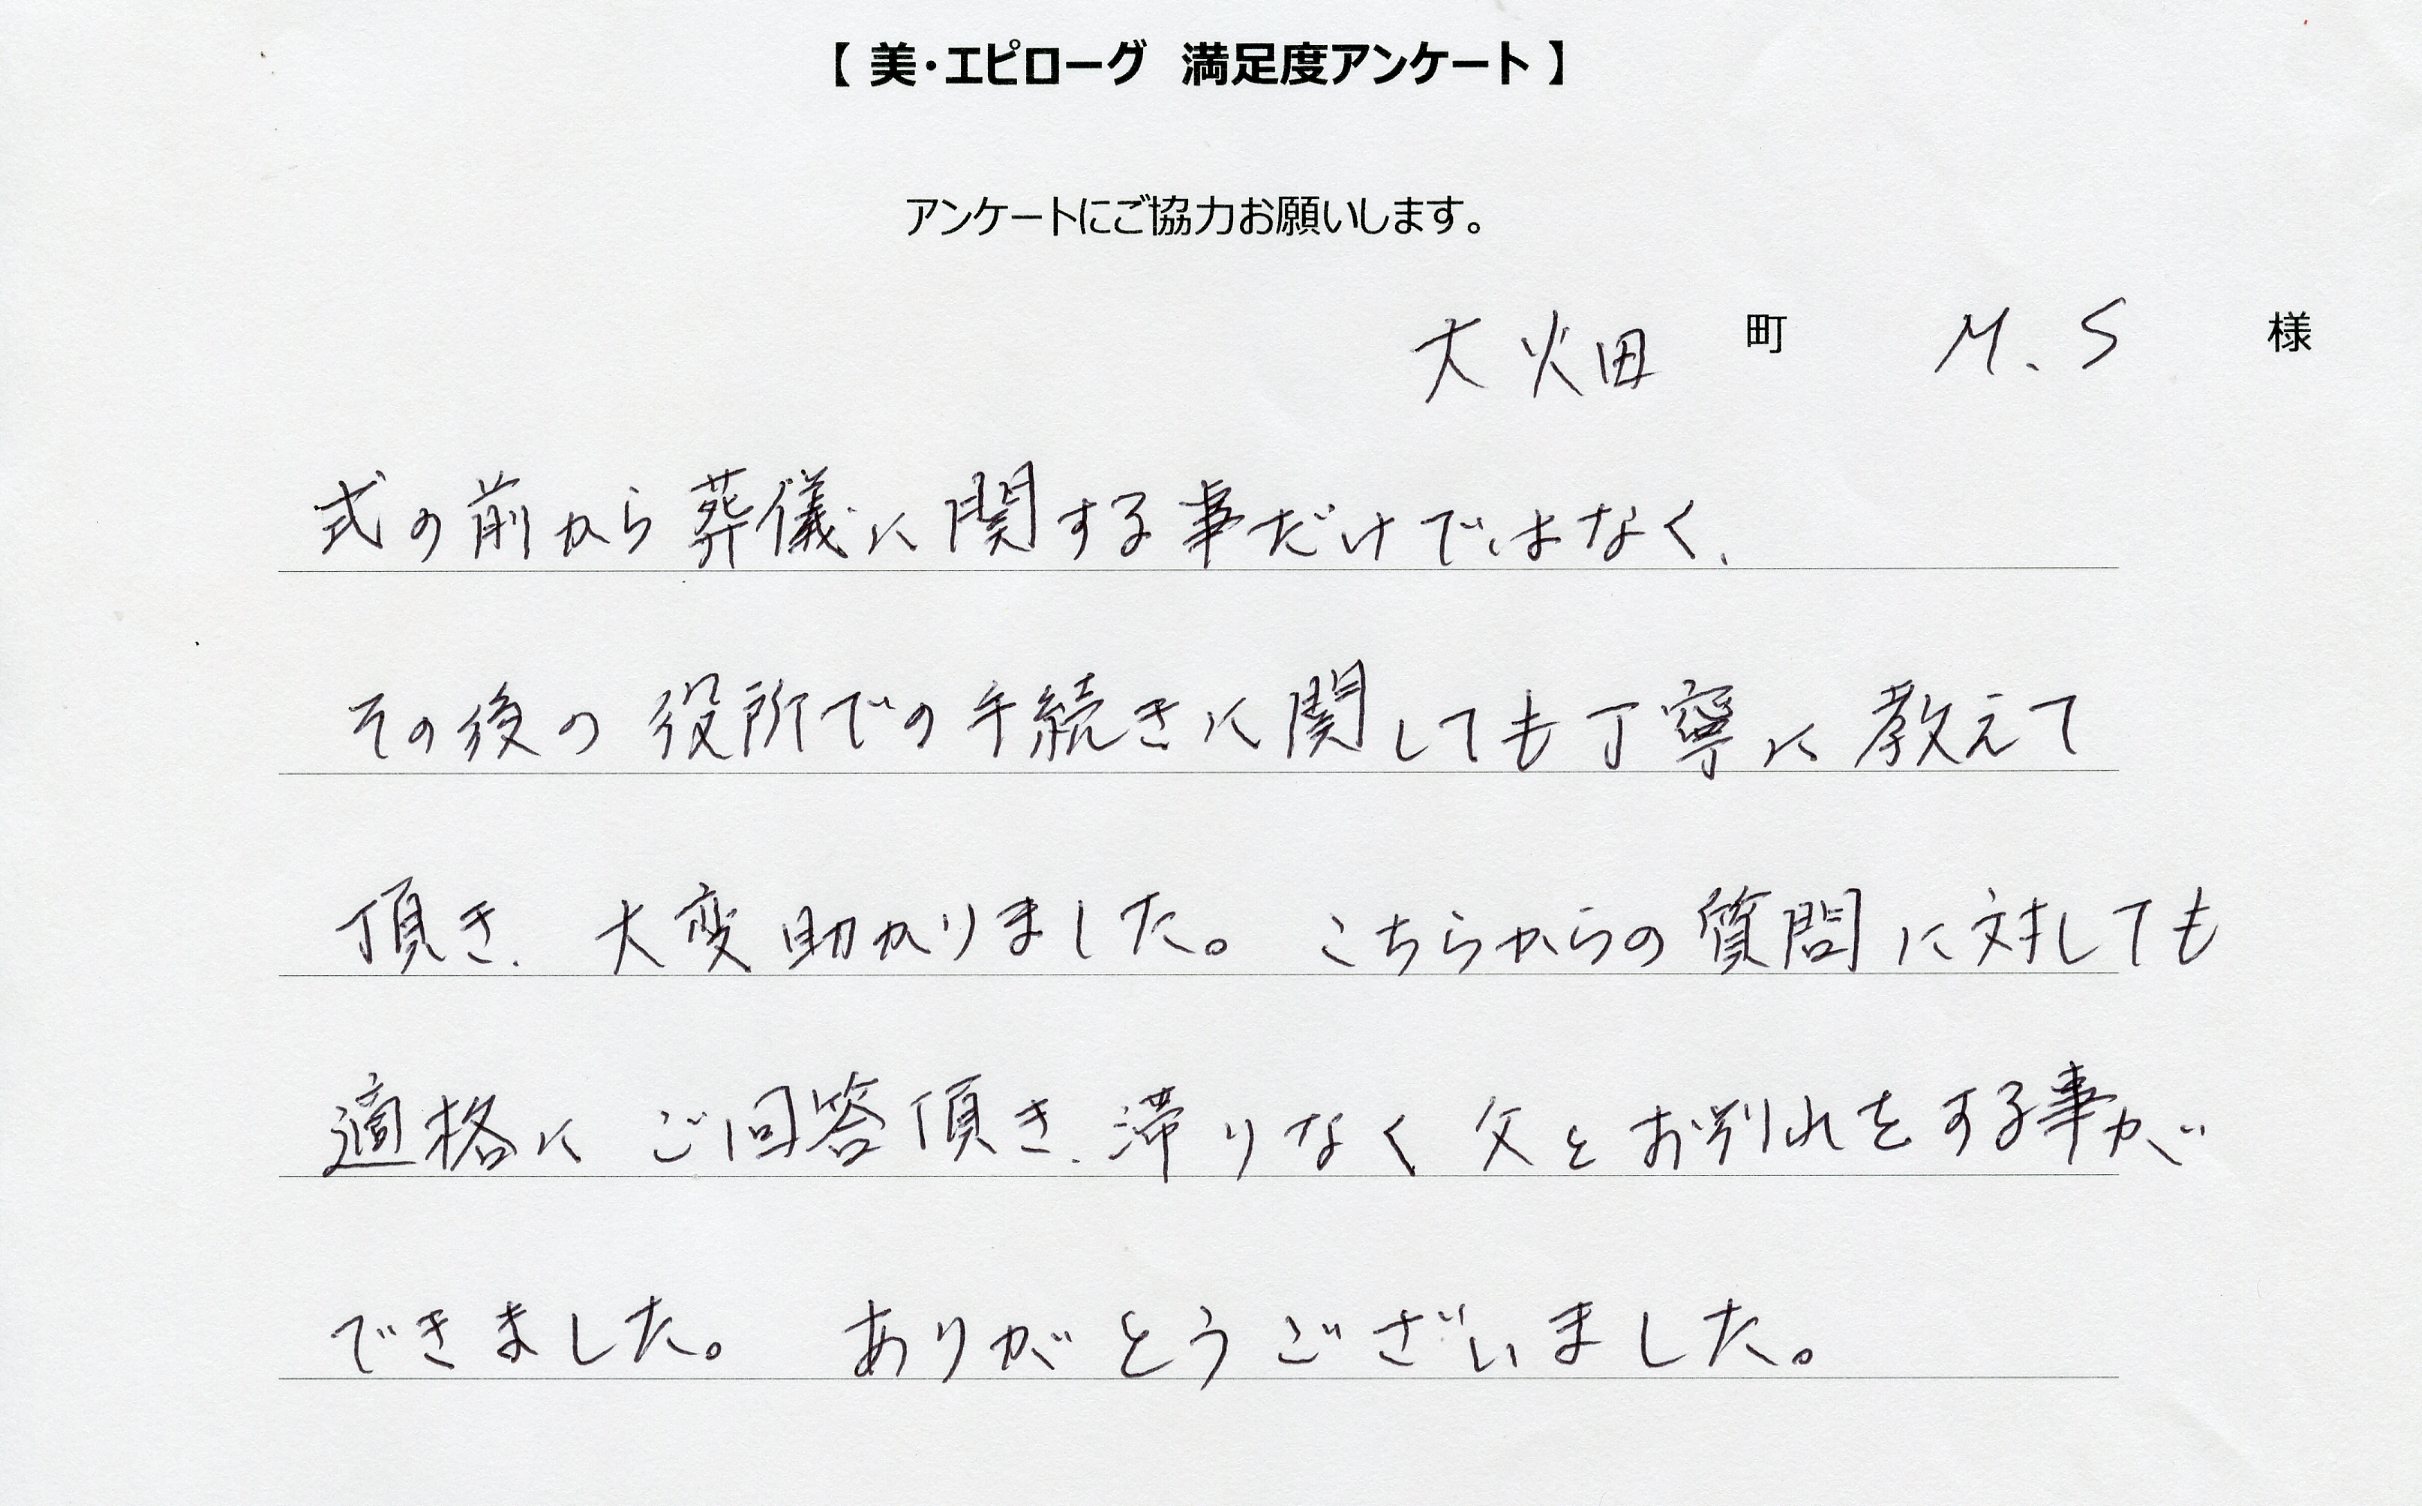 【 美・エピローグ 満足度アンケート 】
アンケートにご協力お願いします。
大畑 町 M.S 様
式の前から葬儀に関する事だけではなく、
その後の役所での手続きに関しても丁寧に教えて
頂き、大変助かりました。こちらからの質問に対しても
適格にご回答頂き、滞りなく父とお別れをする事が
できました。 ありがとうございました。